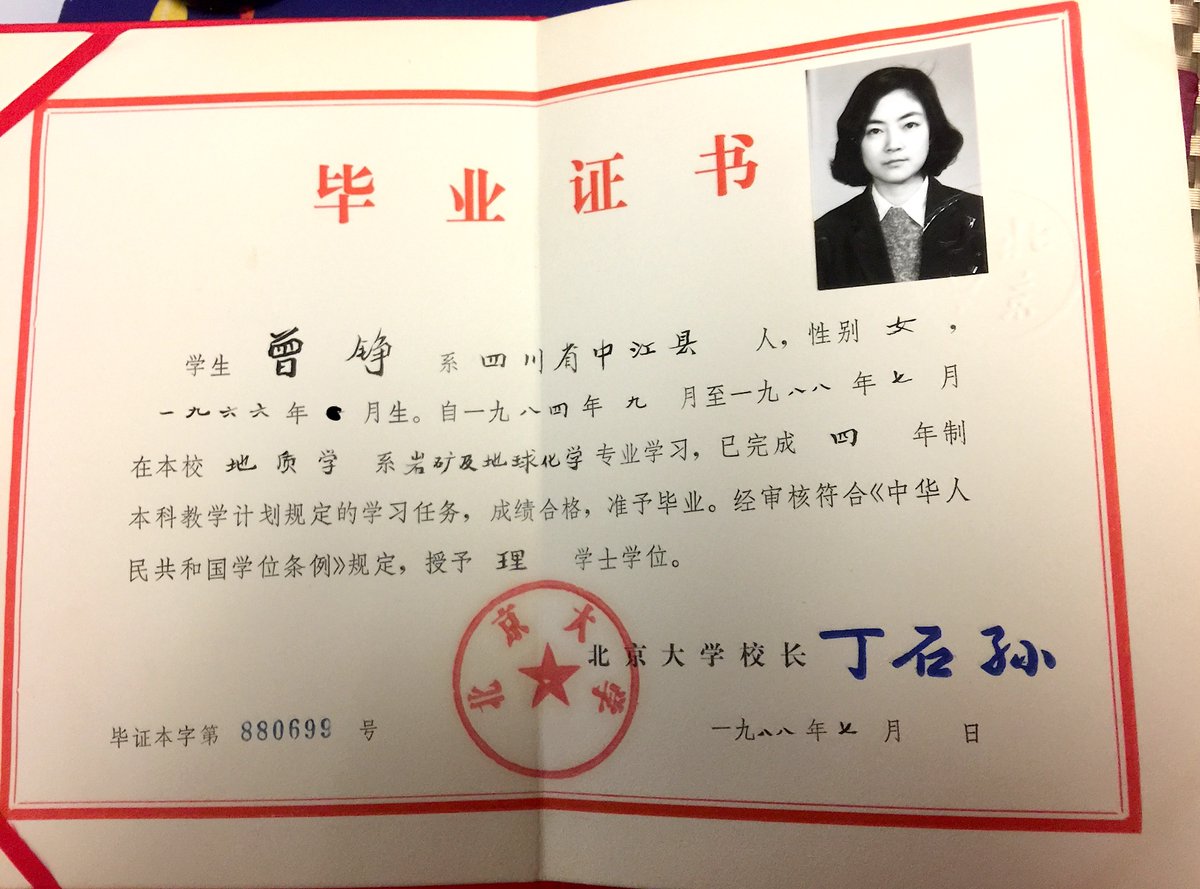 毕业证书
学生 曾铮 系四川省中江县 人，性别 女，
一九六六年 月生。自一九八四年 九 月至一九八八年七月
在本校 地质学 系岩矿及地球化学专业学习，已完成 四 年制
本科教学计划规定的学习任务，成绩合格，准予毕业。经审核符合《中华人
民共和国学位条例》规定，授予 理 学士学位。
北京大学校长 丁石孙
北京大学
毕证本字第 880699 号
一九八八年七月 日
北京